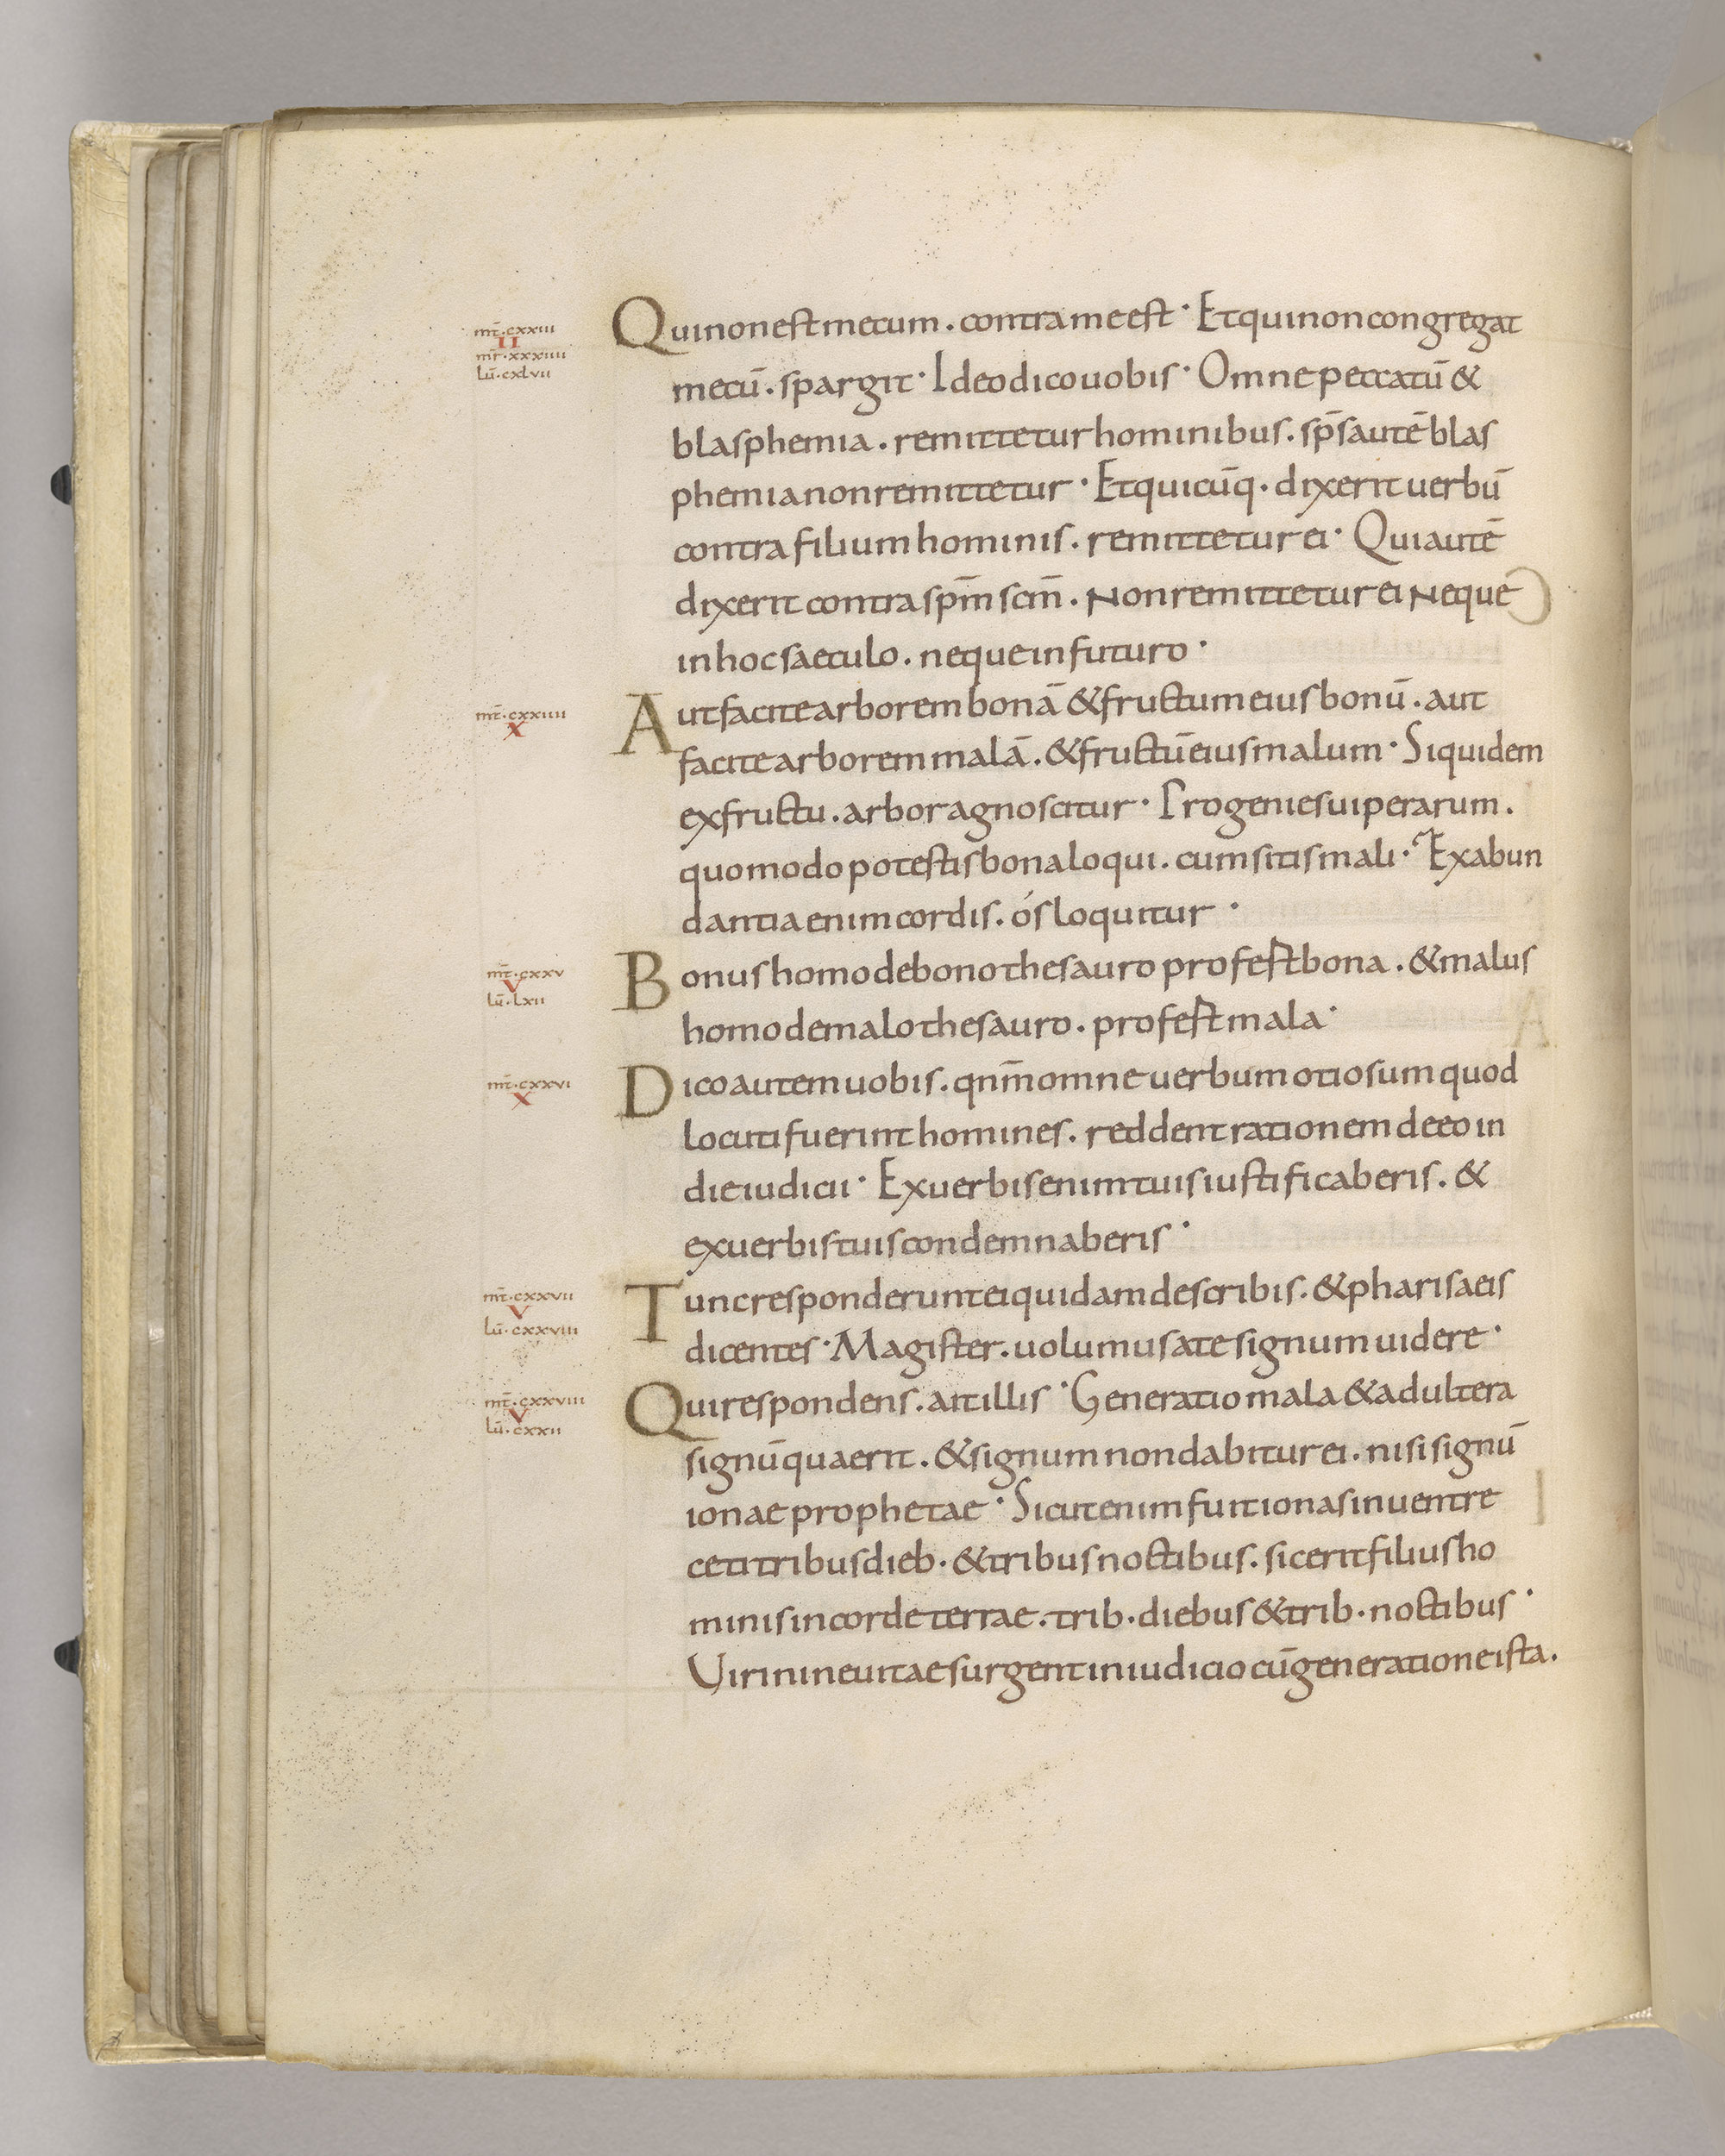 mt̄·cxxiii
II
mr̄·xxxiiii
lū·cxlvii
Qui non est mecum. contra me est· Et qui non congregat
mecū. spargit· Ideo dico uobis· Omne peccatū &
blasphemia. remittetur hominibus. sp̄s autē blas
phemia non remittetur· Et quicūq· dixerit uerbū
contra filium hominis. remittetur ei· Qui autē
dixerit contra sp̄m scm̄. Non remittetur ei Neque
in hoc saeculo. neque in futuro·
mt̄·cxxiiii
X
Aut facite arborem bonā & fructum eius bonū. aut
facite arborem malā. & fructū eius malum· Siquidem
ex fructu. arbor agnoscitur· Progenies uiperarum.
quomodo potestis bona loqui. cum sitis mali· Ex abun
dantia enim cordis. ós loquitur·
mt̄·cxxv
V
lū·lxii
Bonus homo de bono thesauro profert bona. & malus
homo de malo thesauro. profert mala·
mt̄·cxxvi
X
Dico autem uobis. qnm̄ omne uerbum otiosum quod
locuti fuerint homines. reddent rationem de eo in
die iudicii· Ex uerbis enim tuis iustificaberis. &
ex uerbis tuis condemnaberis·
mt̄·cxxvii
V
lū·cxxviii
Tunc responderunt ei quidam de scribis. & pharisaeis
dicentes· Magister. uolumus a te signum uidere·
mt̄·cxxviii
V
lū·cxxii
Qui respondens. ait illis· Generatio mala & adultera
signū quaerit. & signum non dabitur ei. nisi signū
ionae prophetae· Sicut enim fuit ionas in uentre
ceti tribus dieb· & tribus noctibus. sic erit filius ho
minis in corde terrae. trib· diebus & trib· noctibus·
Uiri nineuitae surgent in iudicio cū generatione ista.